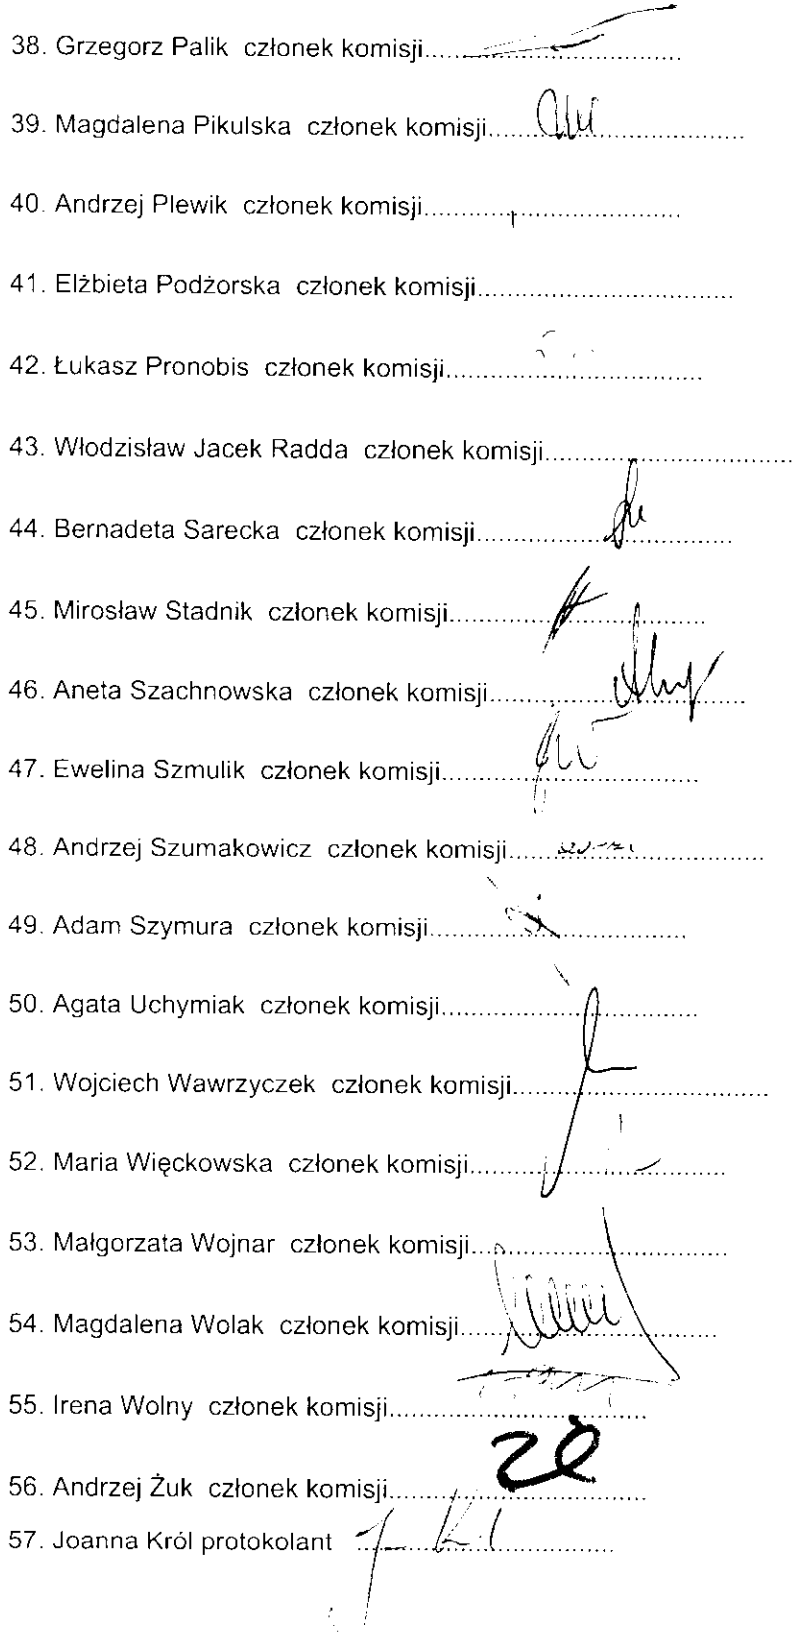 38. Grzegorz Palik członek komisji
39. Magdalena Pikulska członek komisji
40. Andrzej Plewik członek komisji
41. Elżbieta Podżorska członek komisji
42. Łukasz Pronobis członek komisji
43. Włodzisław Jacek Radda członek komisji
44. Bernadeta Sarecka członek komisji
45. Mirosław Stadnik członek komisji
46. Aneta Szachnowska członek komisji
47. Ewelina Szmulik członek komisji
48. Andrzej Szumakowicz członek komisji
49. Adam Szymura członek komisji
50. Agata Uchymiak członek komisji
51. Wojciech Wawrzyczek członek komisji
52. Maria Więckowska członek komisji
53. Małgorzata Wojnar członek komisji
54. Magdalena Wolak członek komisji
55. Irena Wolny członek komisji
56. Andrzej Żuk członek komisji
57. Joanna Król protokolant